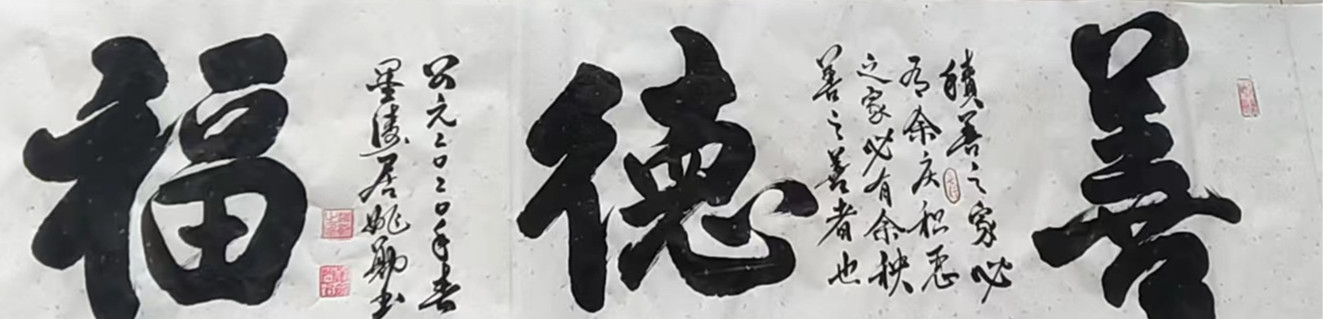 善
積善之家必
有余庆积恶
之家必有余秧
善之善者也
德
公元二〇二〇年春
墨居姚勋书
福